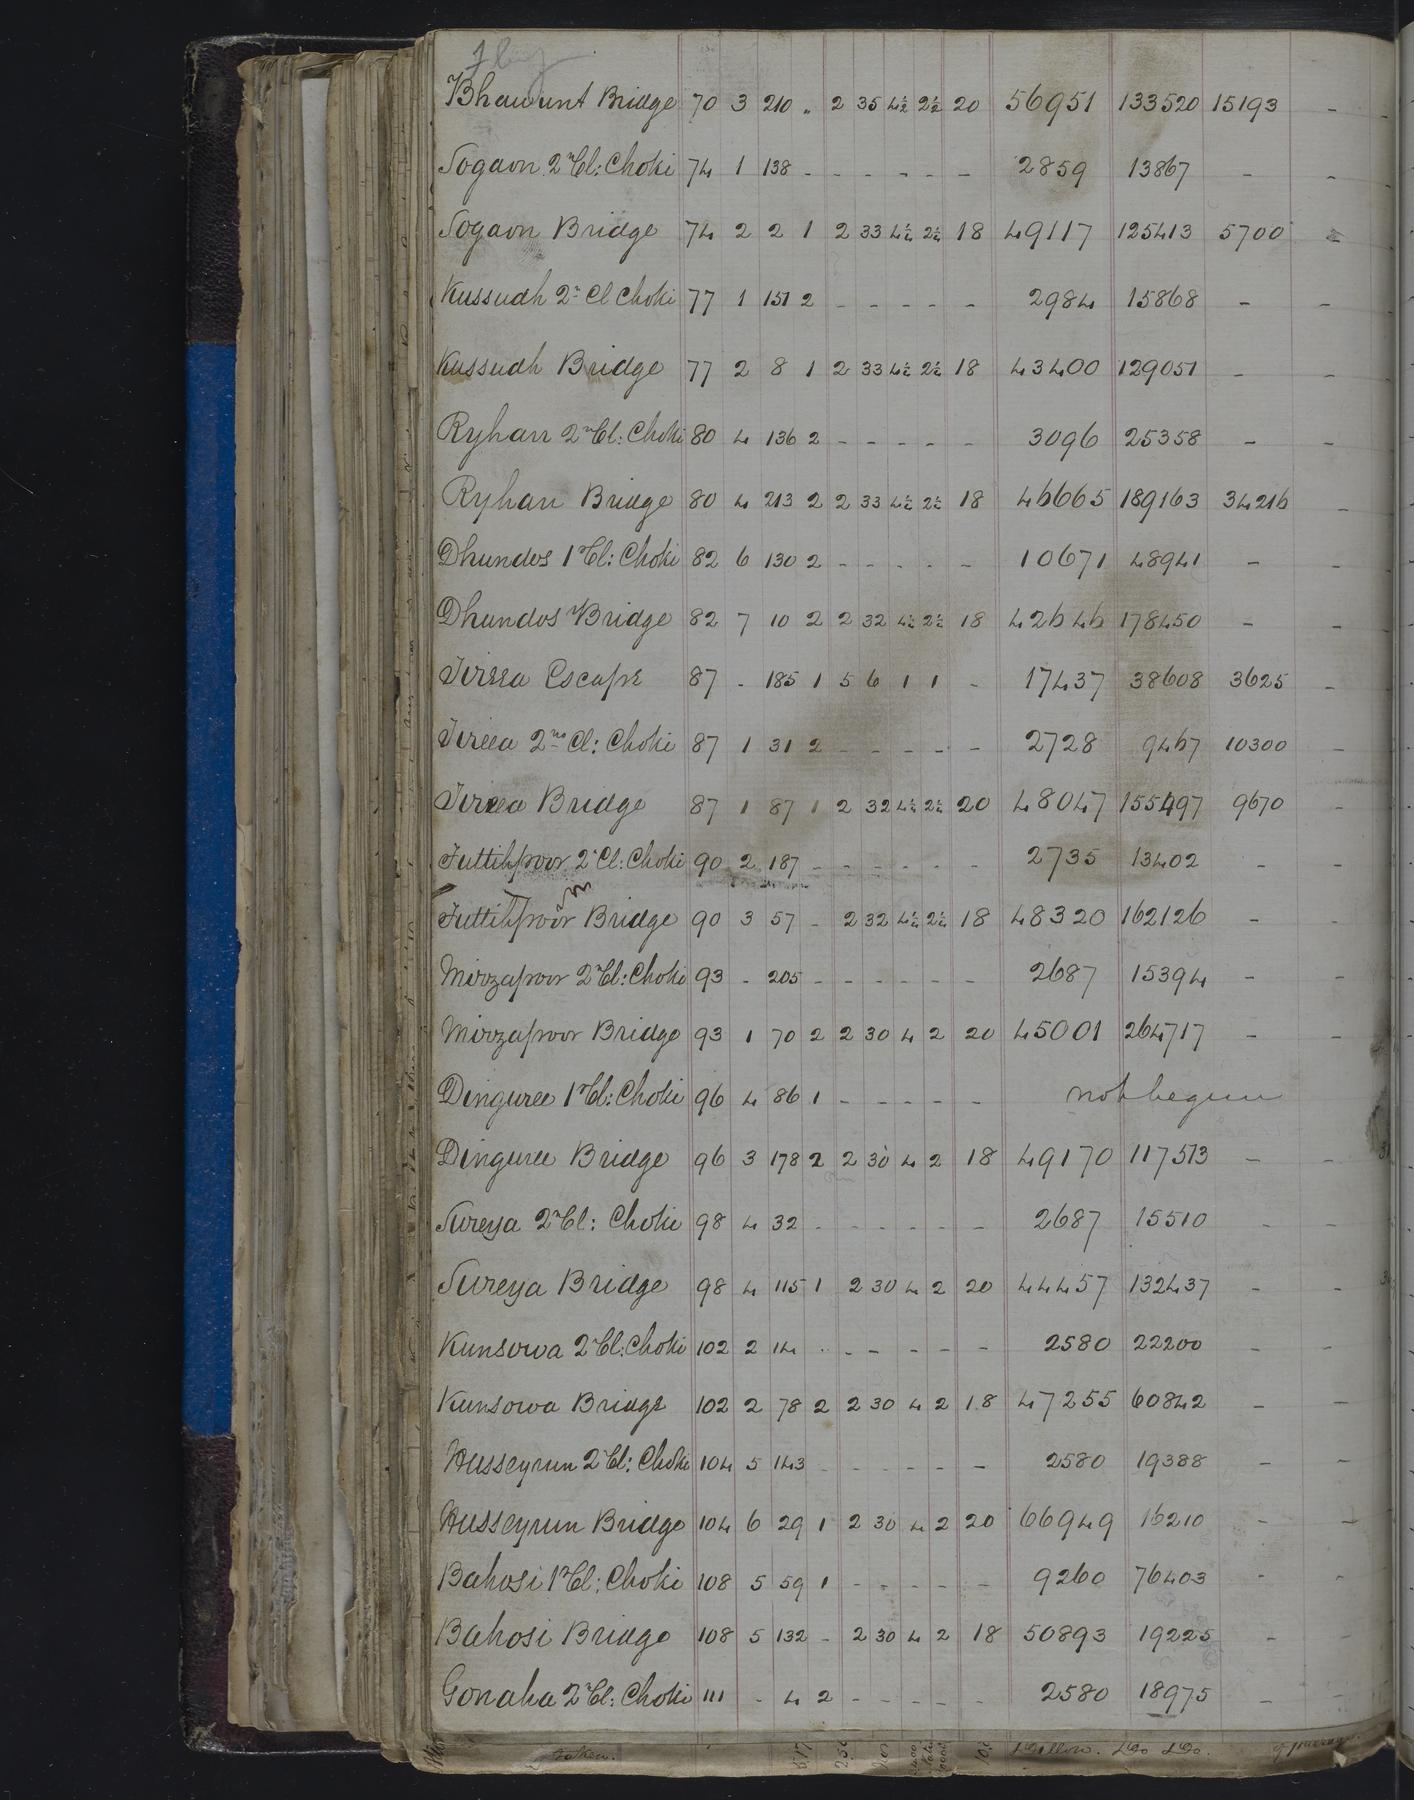 Bhawunt Bridge 70 3 210 „ 2 35 4½ 2½ 20 56951 133520 15193 -
Sogaon 2n Cl: Choki 74 1 138 - - - - - - 2859 13867 - -
Sogaon Bridge 74 2 2 1 2 33 4½ 2½ 18 49117 125413 5700 -
Kussudh 2n Cl Choki 77 1 151 2 - - - - - 2984 15868 - -
Kussudh Bridge 77 2 8 1 2 33 4½ 2½ 18 43400 129051 - -
Ryhan 2n Cl: Choki 80 4 136 2 - - - - - 3096 25358 - -
Ryhan Bridge 80 4 213 2 2 33 4½ 2½ 18 46665 189163 34216 -
Dhundos 1 Cl: Choki 82 6 130 2 - - - - - 10671 48941 - -
Dhundos Bridge 82 7 10 2 2 32 4½ 2½ 18 42646 178450 - -
Tirrea Escape 87 - 185 1 5 6 1 1 - 17437 38608 3625 -
Tirrea 2nd Cl: Choki 87 1 31 2 - - - - - 2728 9467 10300 -
Tirrea Bridge 87 1 87 1 2 32 4½ 2½ 20 48047 155497 9670 -
Futtihpoor 2 Cl: Choki 90 2 187 - - - - - - 2735 13402 - -
Futtihpoor Bridge 90 3 57 - 2 32 4½ 2½ 18 48320 162126 - -
Mirzapoor 2 Cl: Choki 93 - 205 - - - - - - 2687 15394 - -
Mirzapoor Bridge 93 1 70 2 2 30 4 2 20 45001 264717 - -
Dinguree 1 Cl: Choki 96 4 86 1 - - - - - not begun
Dinguree Bridge 96 3 178 2 2 30 4 2 18 49170 117513 - -
Sureya 2 Cl: Choki 98 4 32 - - - - - - 2687 15510 - -
Sureya Bridge 98 4 115 1 2 30 4 2 20 44457 132437 - -
Kunsowa 2 Cl: Choki 102 2 14 - - - - - - 2580 22200 - -
Kunsowa Bridge 102 2 78 2 2 30 4 2 18 47255 60842 - -
Husseyrun 2 Cl: Choki 104 5 143 - - - - - - 2580 19388 - -
Husseyrun Bridge 104 6 29 1 2 30 4 2 20 66949 16210 - -
Bahosi 1 Cl: Choki 108 5 59 1 - - - - - 9260 76403 - -
Bahosi Bridge 108 5 132 - 2 30 4 2 18 50893 19225 - -
Gonaha 2 Cl: Choki 111 - 4 2 - - - - - 2580 18975 - -